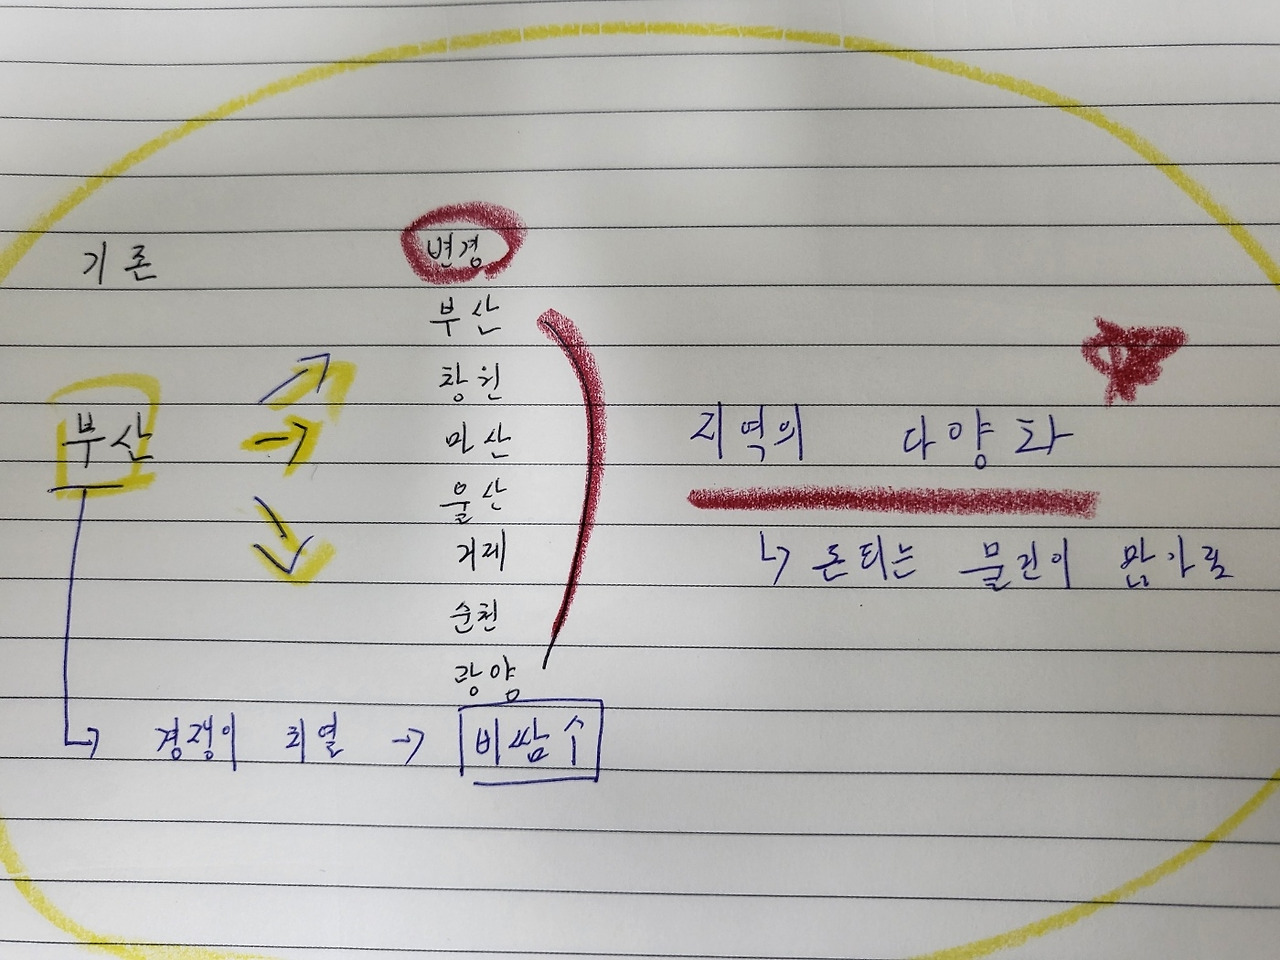 기존
변경
부산
창원
마산
울산
거제
순천
광양
부산
지역의 다양화
돈되는 물건이 많가릴
경쟁이 치열 → 비쌈수